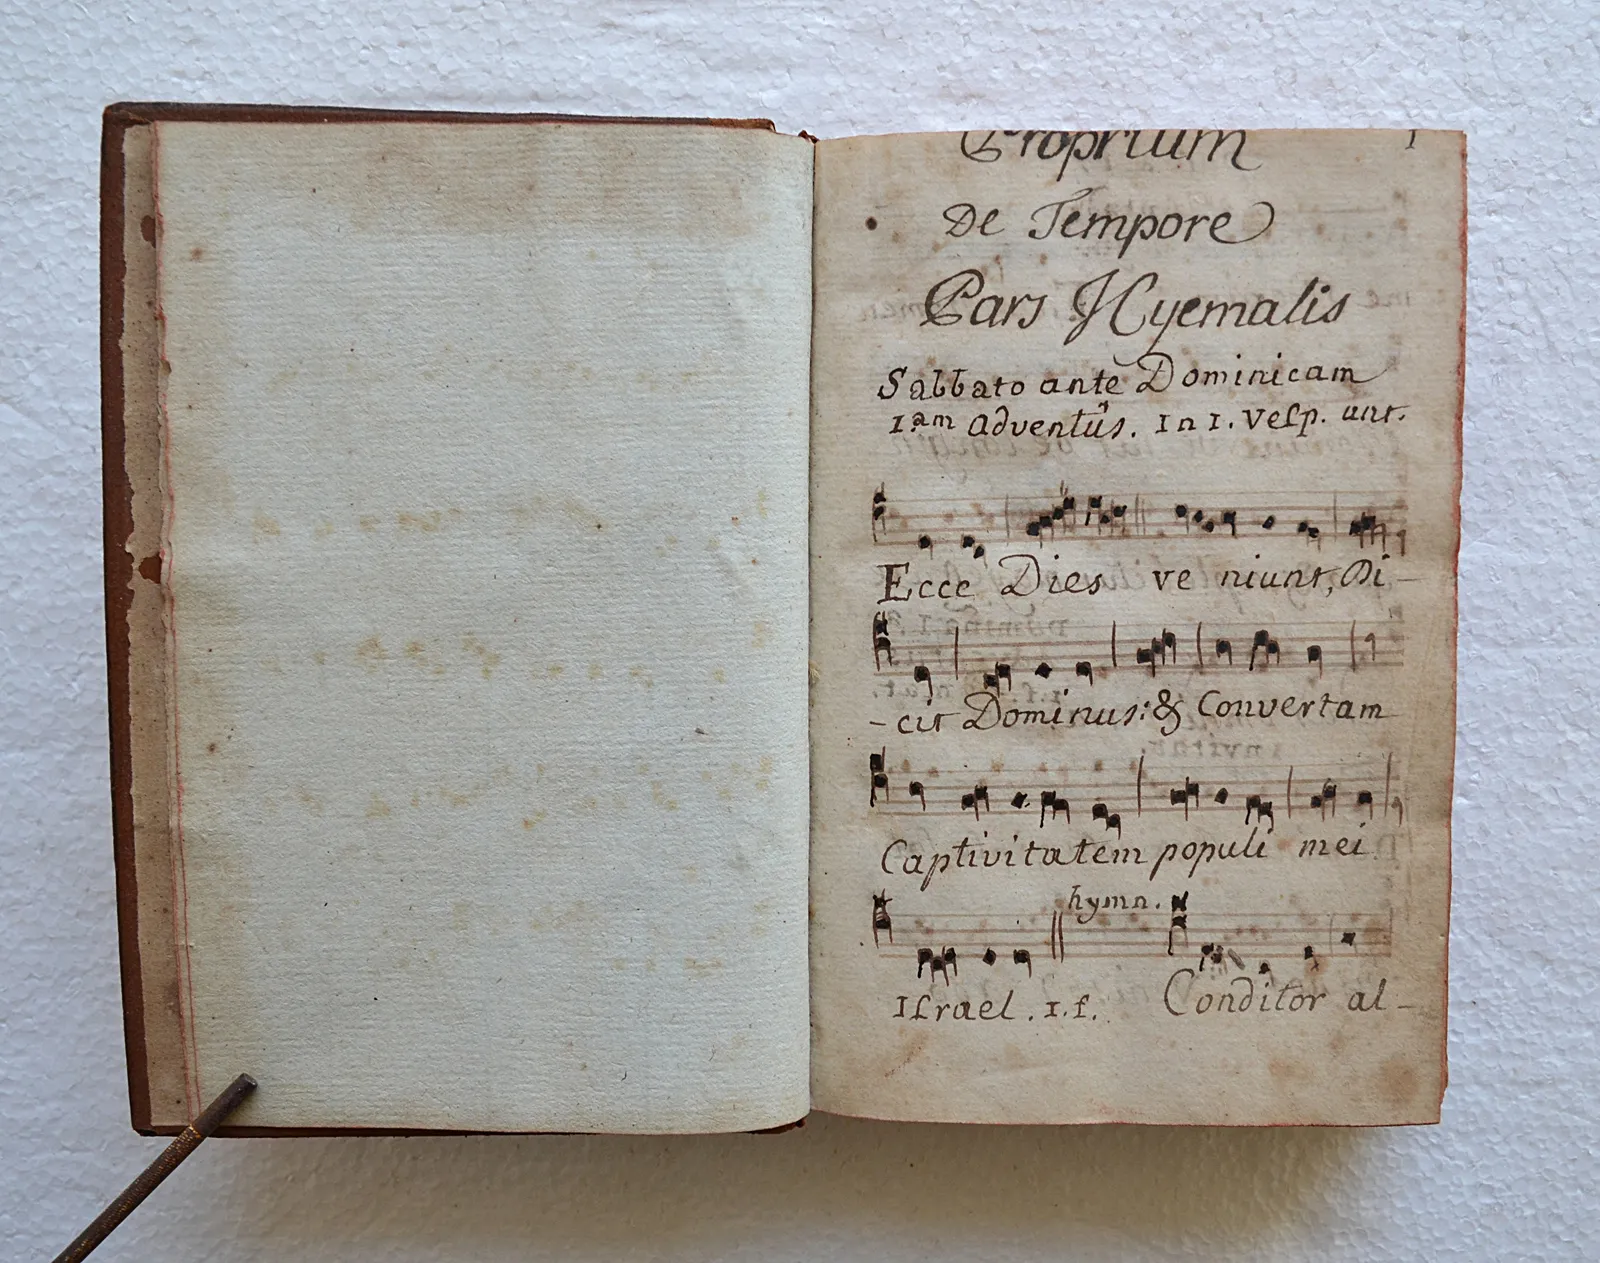 Proprium 1
De Tempore
Pars Hyemalis
Sabbato ante Dominicam
1am Adventûs. In 1. Vesp. ant.
Ecce Dies ve niunt, Di-
-cit Dominus: & Convertam
Captivitatem populi mei
hymn.
Israel. 1.f. Conditor al-